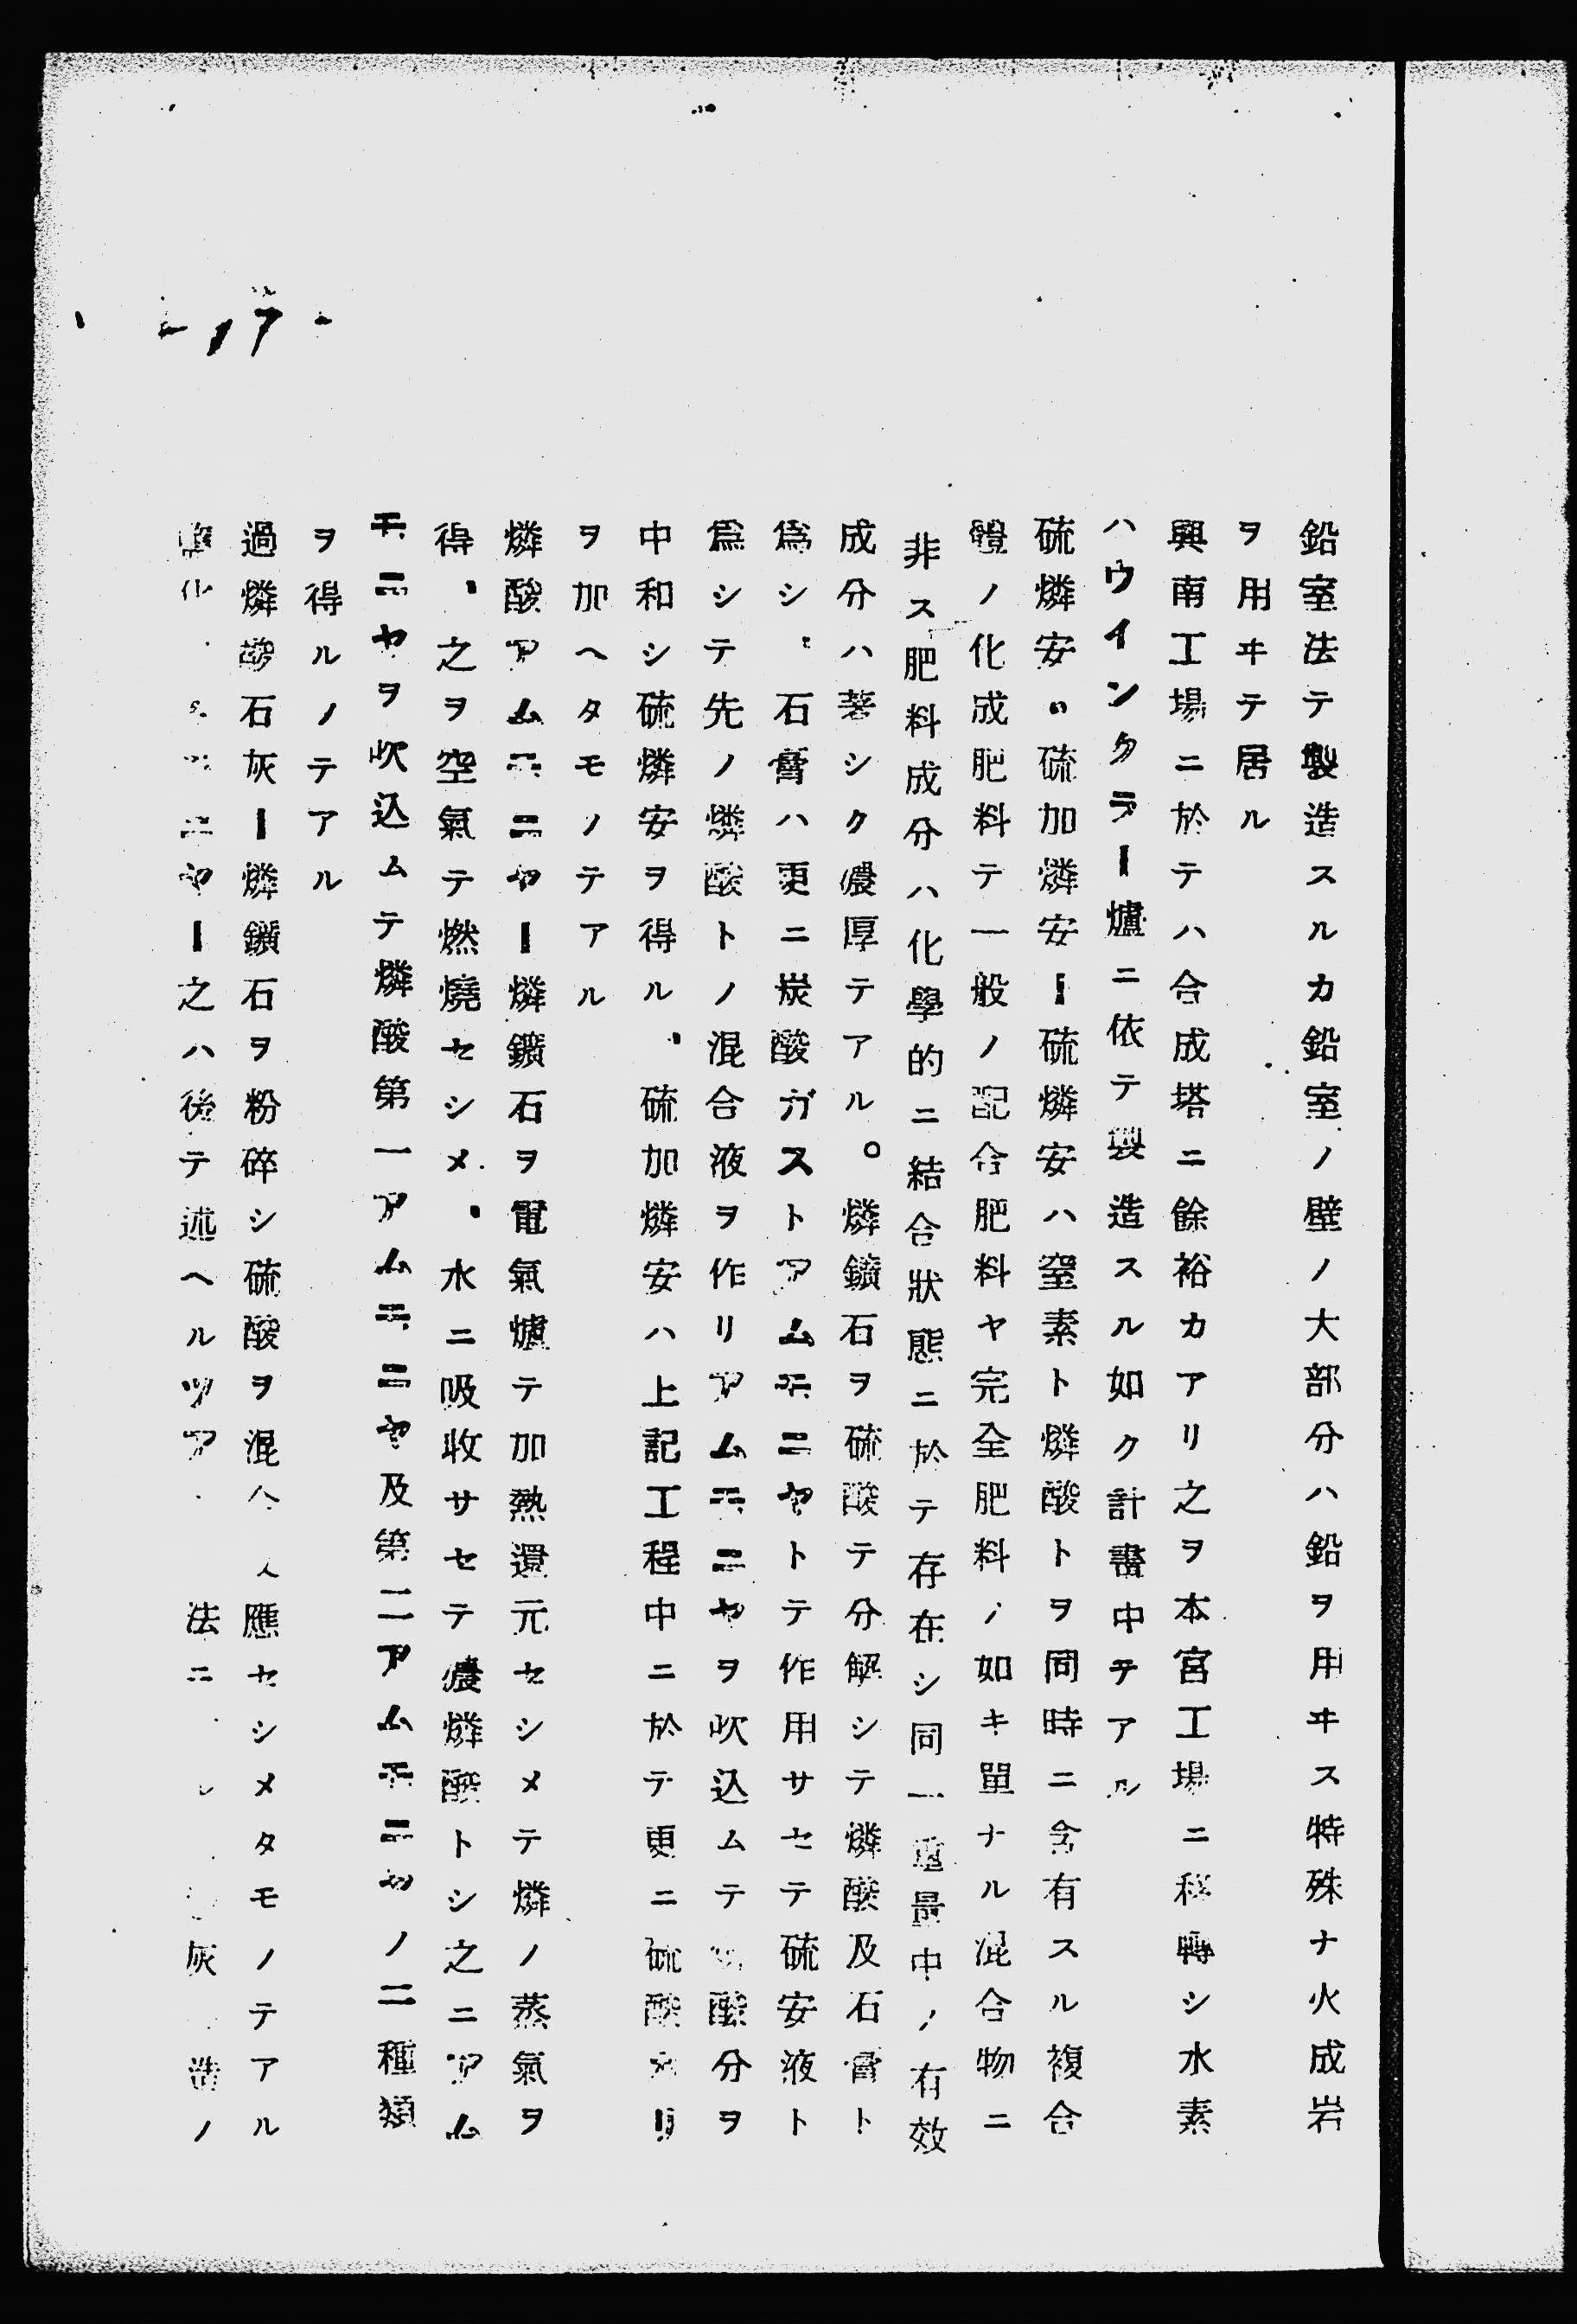 鉛室法テ製造スルカ鉛室ノ壁ノ大部分ハ鉛ヲ用ヰス特殊ナ火成岩
ヲ用ヰテ居ル
興南工場ニ於テハ合成塔ニ餘裕カアリ之ヲ本宮工場ニ移轉シ水素
ハウインクラー爐ニ依テ製造スル如ク計畫中テアル
硫燐安、硫加燐安ー硫燐安ハ窒素ト燐酸トヲ同時ニ含有スル複合
體ノ化成肥料テ一般ノ配合肥料ヤ完全肥料ノ如キ單ナル混合物ニ
非ス肥料成分ハ化學的ニ結合狀態ニ於テ存在シ同一重量中ノ有效
成分ハ著シク濃厚テアル。燐鑛石ヲ硫酸テ分解シテ燐酸及石膏ト
爲シ、石膏ハ更ニ炭酸ガストアムモニヤトテ作用サセテ硫安液ト
爲シテ先ノ燐酸トノ混合液ヲ作リアムモニヤヲ吹込ムテ燐酸分ヲ
中和シ硫燐安ヲ得ル、硫加燐安ハ上記工程中ニ於テ更ニ硫酸加里
ヲ加ヘタモノテアル
燐酸アムモニヤー燐鑛石ヲ電氣爐テ加熱還元セシメテ燐ノ蒸氣ヲ
得、之ヲ空氣テ燃燒セシメ、水ニ吸收サセテ濃燐酸トシ之ニアム
モニヤヲ吹込ムテ燐酸第一アムモニヤ及第二アムモニヤノ二種類
ヲ得ルノテアル
過燐酸石灰ー燐鑛石ヲ粉碎シ硫酸ヲ混 應セシメタモノテアル
化 ニヤー之ハ後テ述ヘルツア 法ニ 灰 造ノ
- 17 -